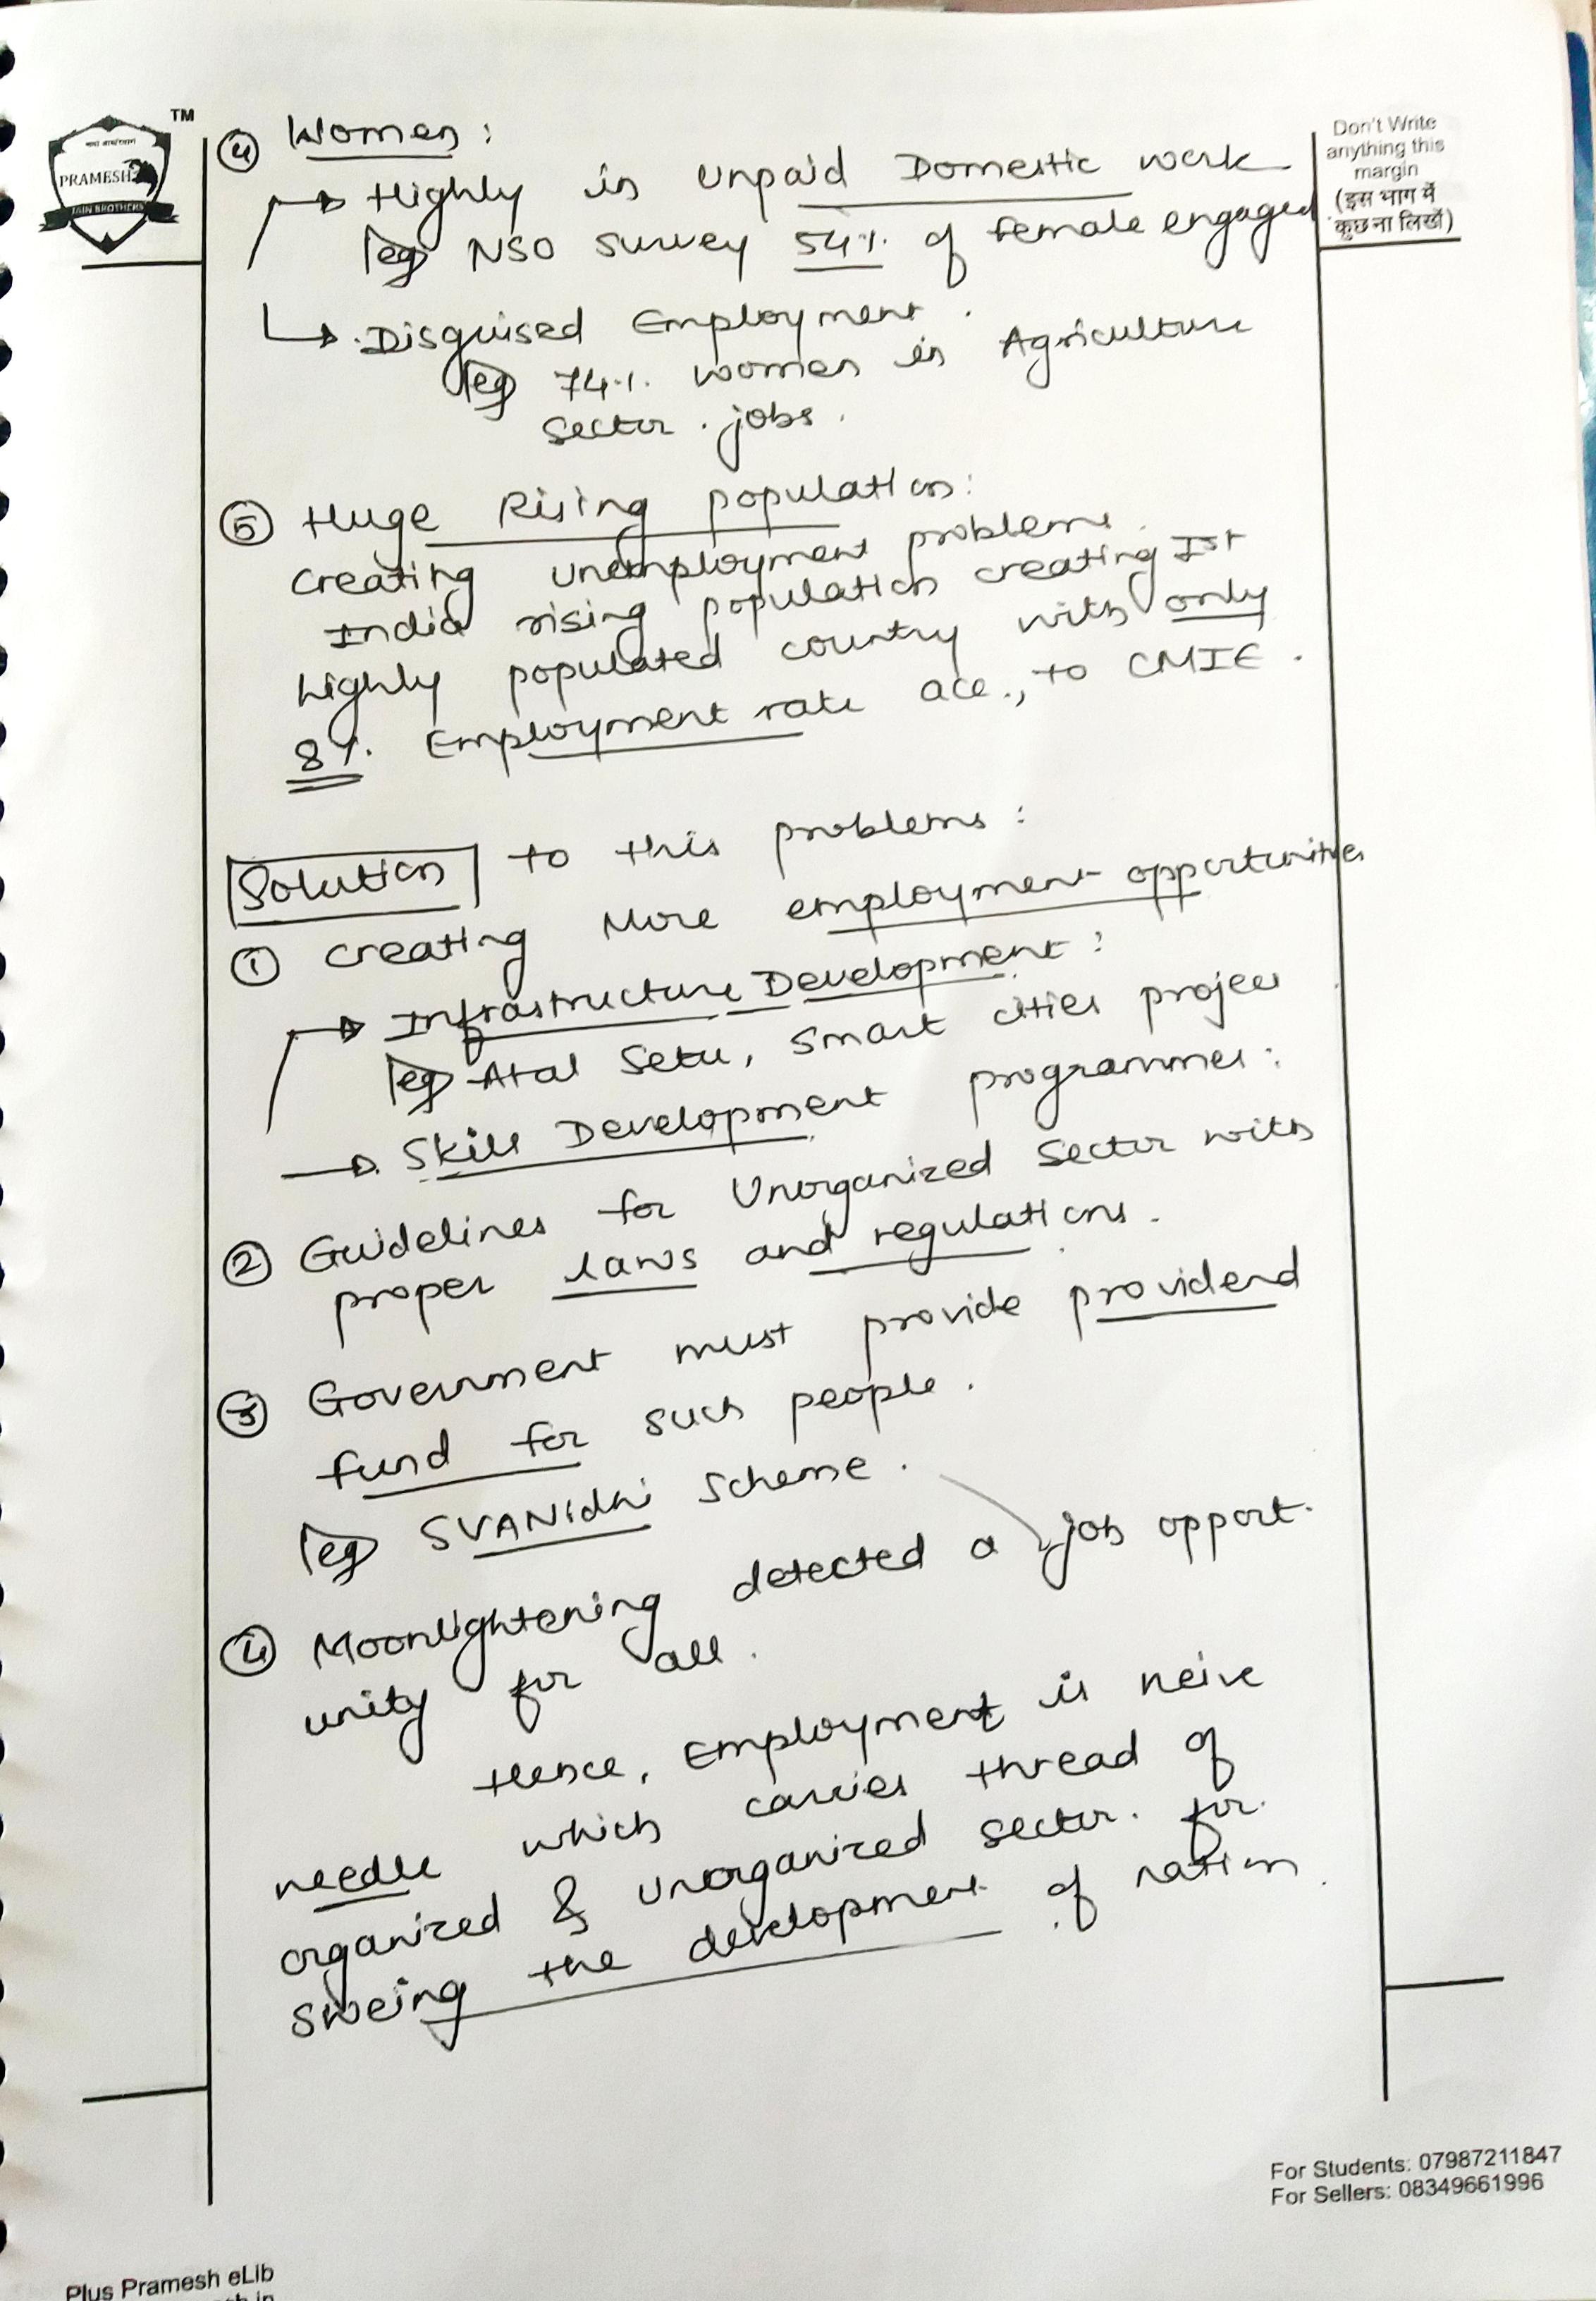 TM
PRAMESH
JAIN BROTHERS
Don't Write
anything this
margin
(इस भाग में
कुछ ना लिखें)
④ Women:
→ Highly in Unpaid Domestic work
eg NSO Survey 54% of female engaged
→ Disguised Employment.
eg 74% women in Agriculture
Sector jobs.
⑤ Huge Rising population:
Creating Unemployment problem.
India rising population creating Ist
highly populated country with only
8% Employment rate acc., to CMIE.
Solution to this problems:
① Creating More employment opportunities
→ Infrastructure Development:
eg Atal Setu, Smart cities project
→ Skill Development programmes:
② Guidelines for Unorganized Sector with
proper laws and regulations.
③ Government must provide providend
fund for such people.
eg SVANidhi Scheme.
④ Moonlightening detected a job opport-
unity for all.
Hence, Employment is neive
needle which carries thread of
organized & unorganized sector. for
sweing the development of nation.
For Students: 07987211847
For Sellers: 08349661996
Plus Pramesh eLib